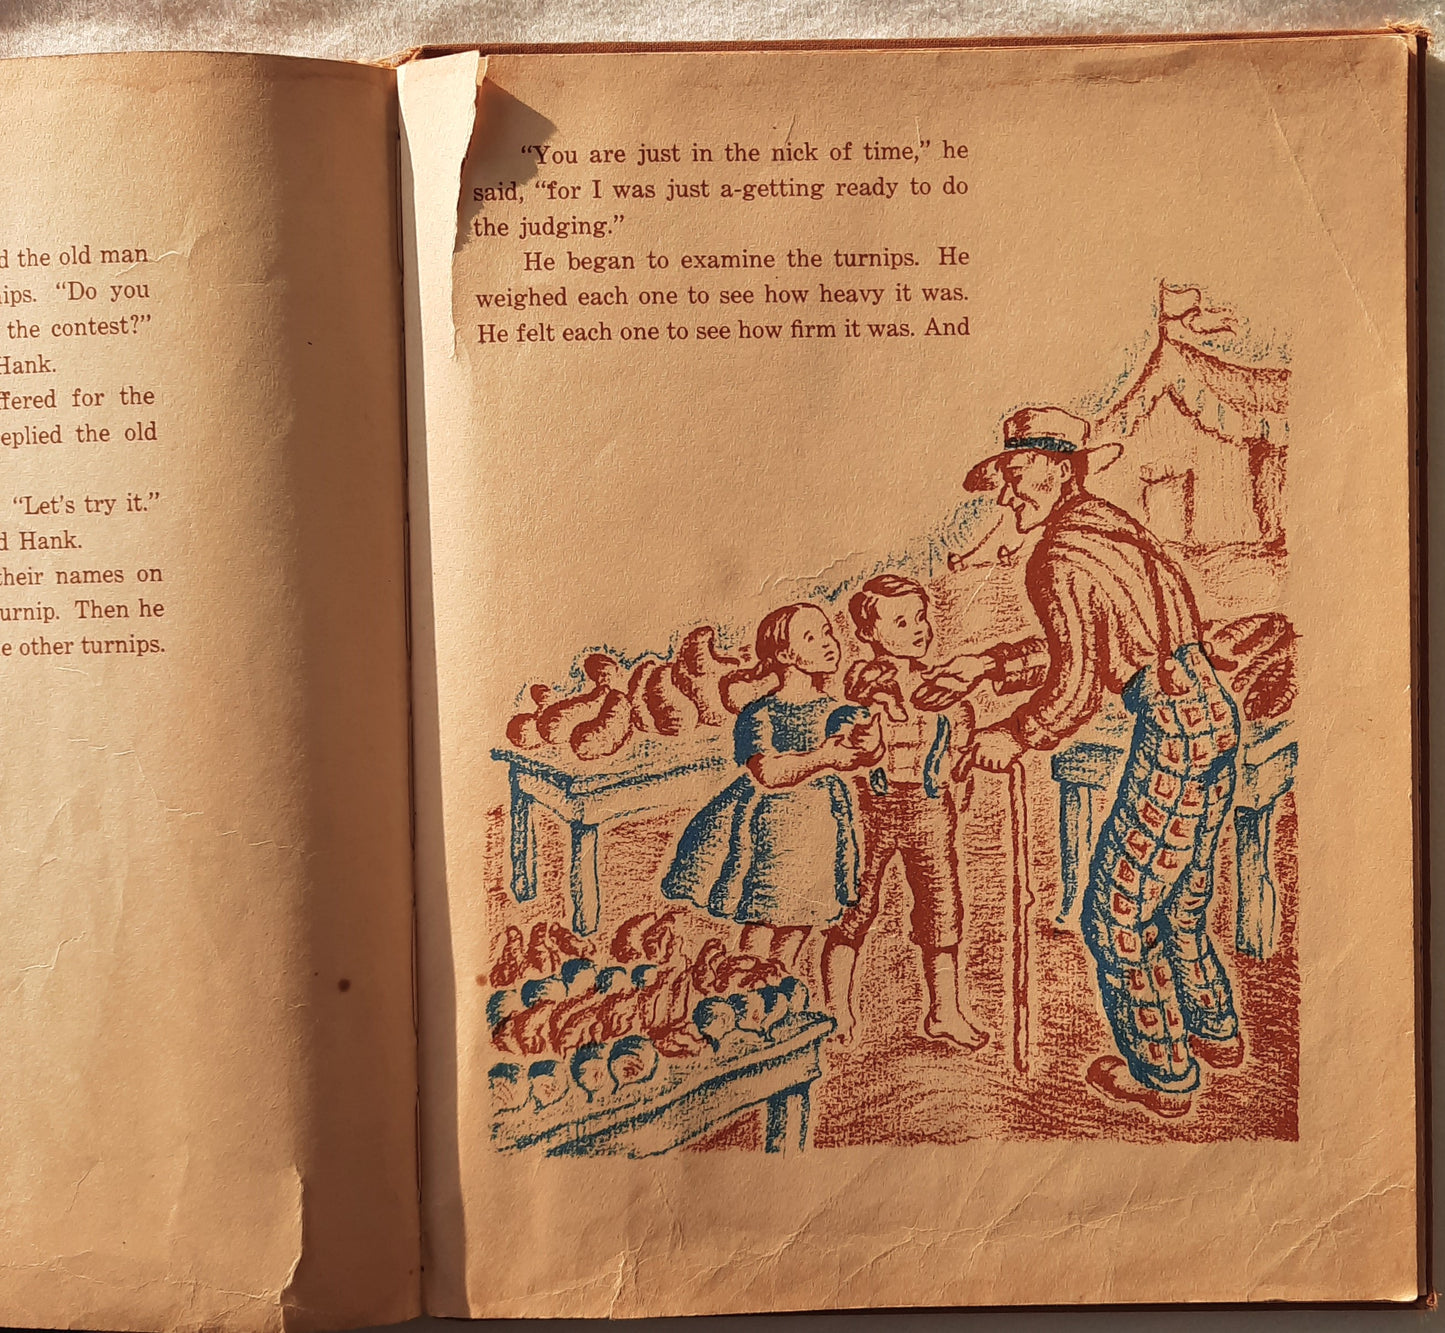 the old man
"Do you
the contest?"
Hank.
for the
replied the old
"Let's try it."
Hank.
their names on
Then he
other turnips.
"You are just in the nick of time," he
said, "for I was just a-getting ready to do
the judging."
He began to examine the turnips. He
weighed each one to see how heavy it was.
He felt each one to see how firm it was. And